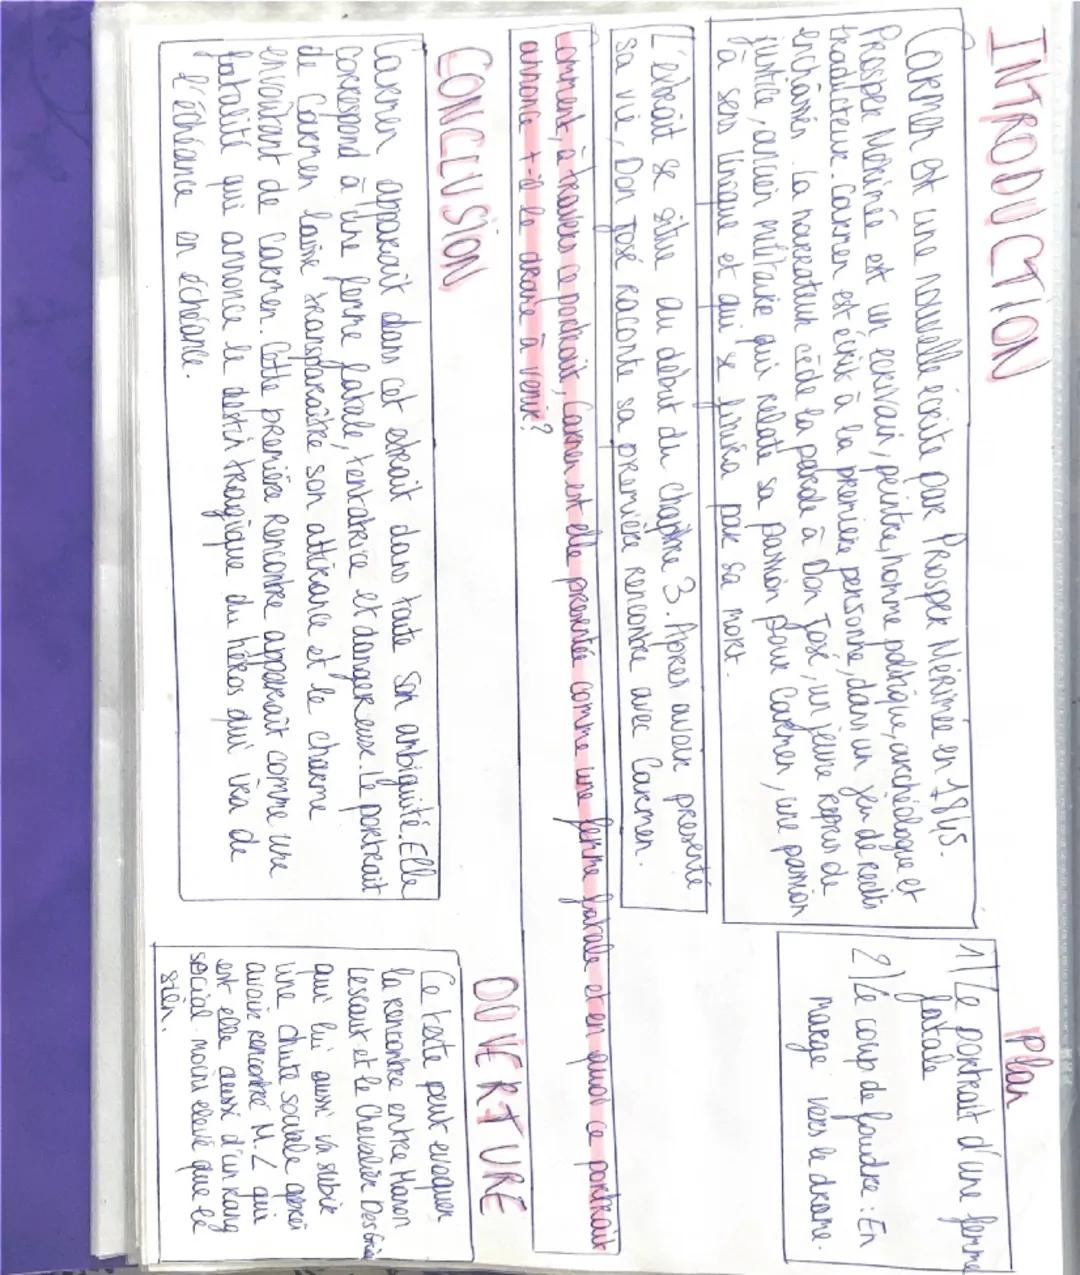 INTRODUCTION
Carmen est une nouvelle écrite par Prosper Mérimée en 1845.
Prosper Mérimée est un écrivain, peintre, homme politique, archéologue et
traducteur. Carmen est écrit à la première personne, dans un jeu de récits
enchâssés. La narrateur cède la parole à Don José, un jeune repris de
justice, ancien militaire qui relate sa passion pour Carmen, une passion
à sens unique et qui se finira par sa mort.
Plan
1) Le portrait d'une femme
fatale
2) Le coup de foudre : En
marge vers le drame.
L'extrait se situe au début du chapitre 3. Après avoir présenté
sa vie, Don José raconte sa première rencontre avec Carmen.
Comment, à travers ce portrait, Carmen est elle présentée comme une femme fatale et en quoi ce portrait
annonce t-il le drame à venir?
CONCLUSION
Carmen apparait dans cet extrait dans toute son ambiguité. Elle
correspond à une femme fatale, tentatrice et dangereuse. Le portrait
de Carmen laisse transparaître son attirance et le charme
envoûtant de Carmen. Cette première rencontre apparaît comme une
fatalité qui annonce le destin tragique du héros qui ira de
l'échéance en échéance.
OUVERTURE
Ce texte peut évoquer
la rencontre entre Manon
Lescaut et le Chevalier Des Grieux
qui lui aussi va subir
une chute sociale après
avoir rencontré M.L qui
est elle aussi d'un rang
social moins élevé que le
sien.